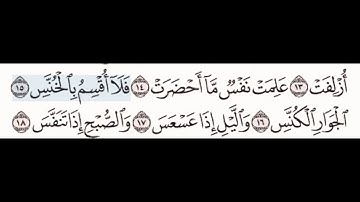 أُزْلِفَتْ ١٣ عَلِمَتْ نَفْسٌ مَّآ أَحْضَرَتْ ١٤ فَلَآ أُقْسِمُ بِٱلْخُنَّسِ ١٥
ٱلْجَوَارِ ٱلْكُنَّسِ ١٦ وَٱلَّيْلِ إِذَا عَسْعَسَ ١٧ وَٱلصُّبْحِ إِذَا تَنَفَّسَ ١٨